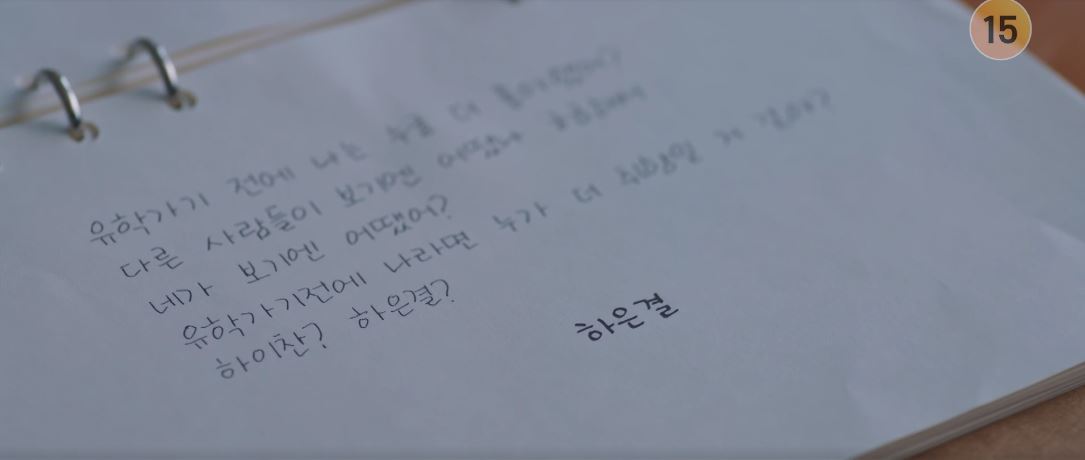 15
유학가기 전에 나는 누굴 더 좋아했어?
다른 사람들이 보기엔 어땠는지
네가 보기엔 어땠어?
유학가기전에 나라면 누가 더 취향일 거 같아?
하이찬? 하은결?
하은결